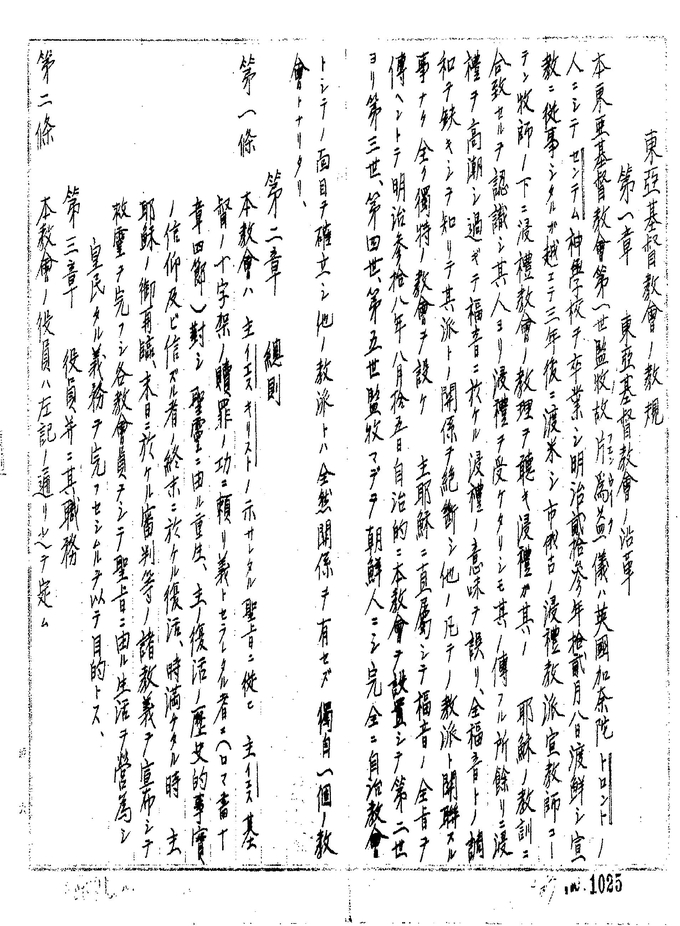 東亞基督教會ノ教規
第一章 東亞基督教會ノ沿革
本東亞基督教會第一世監牧故片爲益儀ハ英國加奈陀トロントノ
人ニシテセンテム神學校ヲ卒業シ明治貳拾参年拾貳月八日渡鮮シ宣
教ニ從事シタルガ越エテ三年後ニ渡米シ市俄古ノ浸禮教派宣教師ゴー
デン牧師ノ下ニ浸禮教會ノ教理ヲ聽キ浸禮ガ其ノ 耶穌ノ教訓ニ
合致セルヲ認識シ其人ヨリ浸禮ヲ受ケタリシモ其ノ傳フル所餘リニ浸
禮ヲ高潮シ過ギテ福音ニ於ケル浸禮ノ意味ヲ誤リ、全福音トノ調
和ヲ缺キシヲ知リテ其派トノ關係ヲ絶斷シ他ノ凡テノ教派ト關聯スル
事ナク全ク獨特ノ教會ヲ設ケ 主耶穌ニ直屬シテ福音ノ全旨ヲ
傳ヘントテ明治参拾八年八月拾五日自治的ニ本教會ヲ設置シテ第二世
ヨリ第三世、第四世、第五世監牧マデヲ朝鮮人ニシ完全ニ自治教會
トシテノ面目ヲ確立シ他ノ教派トハ全然關係ヲ有セズ 獨自一個ノ教
會トナリタリ、
第二章 總則
第一條 本教會ハ 主イエスキリストノ示サレタル聖旨ニ從ヒ 主イエス基
督ノ十字架ノ贖罪ノ功ニ賴リ義トセラレタル者ニ(ロマ書十
章四節)對シ 聖靈ニ由ル重生、主ノ復活ノ歷史的事實
ノ信仰及ビ信ズル者ノ終末ニ於ケル復活、時滿チタル時 主
耶穌ノ御再臨末日ニ於ケル審判等ノ諸教義ヲ宣布シテ
救靈ヲ完フシ各教會員ヲシテ聖旨ニ由ル生活ヲ營爲シ
皇民タル義務ヲ完フセシムルヲ以テ目的トス、
第三章 役員并ニ其職務
第二條 本教會ノ役員ハ左記ノ通リ之ヲ定ム
1025